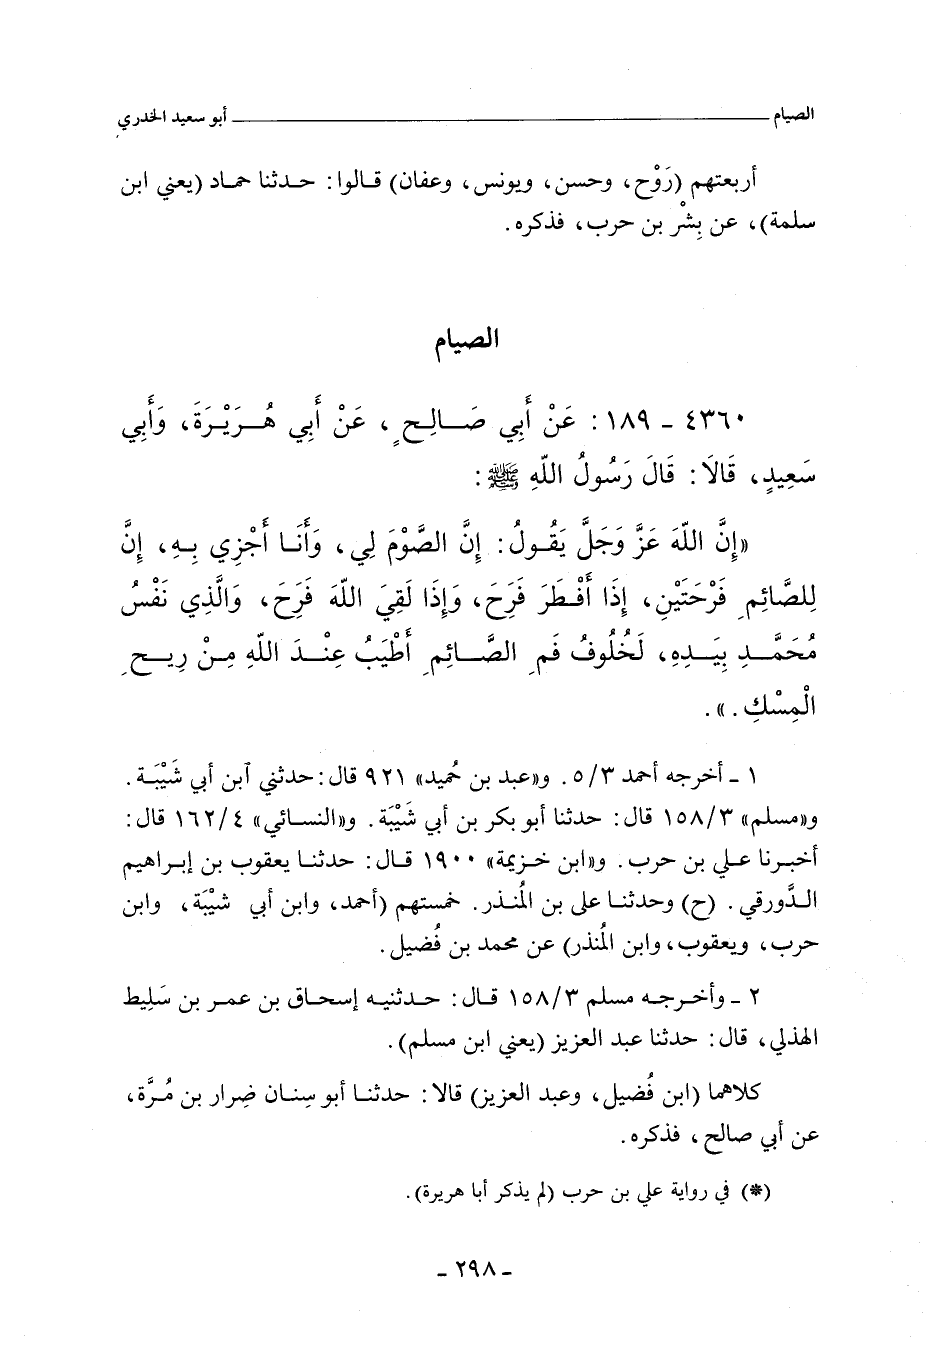 الصيام ــــــــ أبو سعيد الخدري
أربعتهم (رَوْح، وحسن، ويونس، وعفان) قـالوا: حـدثنا حمـاد (يعني ابن
سلمة)، عن بِشْر بن حرب، فذكره.
الصيام
٤٣٦٠ ـ ١٨٩: عَنْ أَبِي صَـالِـحٍ، عَنْ أَبِي هُـرَيْـرَةَ، وَأَبِي
سَعِيدٍ، قَالَا: قَالَ رَسُولُ اللّهِ ﷺ:
«إِنَّ اللّهَ عَزَّ وَجَلَّ يَقُـولُ: إِنَّ الصَّوْمَ لِي، وَأَنَـا أَجْزِي بِـهِ، إِنَّ
لِلصَّائِمِ فَرْحَتَيْنِ، إِذَا أَفْـطَرَ فَرِحَ، وَإِذَا لَقِيَ اللّهَ فَرِحَ، وَالَّذِي نَفْسُ
مُحَمَّـدٍ بِيَـدِهِ، لَخُلُوفُ فَمِ الصَّـائِمِ أَطْيَبُ عِنْـدَ اللّهِ مِـنْ رِيـحِ
الْمِسْكِ.».
١ ـ أخرجه أحمد ٥/٣. و«عبد بن حُميد» ٩٢١ قال: حدثني آبن أبي شَيْبَـة.
و«مسلم» ١٥٨/٣ قال: حدثنا أبو بكر بن أبي شَيْبَة. و«النسـائي» ١٦٢/٤ قال:
أخبـرنا علـي بن حرب. و«ابن خـزيمة» ١٩٠٠ قـال: حدثنـا يعقوب بن إبـراهيم
الـدَّورقي. (ح) وحدثنـا علي بن المُنـذر. خمستهم (أحمد، وابن أبي شَيْبَة، وابن
حرب، ويعقوب، وابن المُنذر) عن محمد بن فُضيل.
٢ ـ وأخـرجـه مسلم ١٥٨/٣ قـال: حـدثنيـه إسحـاق بن عمـر بن سَلِيط
الهذلي، قال: حدثنا عبد العزيز (يعني ابن مسلم).
كلاهما (ابن فُضيل، وعبد العزيز) قالا: حدثنـا أبو سِنـان ضِرار بن مُـرَّة،
عن أبي صالح، فذكره.
(*) في رواية علي بن حرب (لم يذكر أبا هريرة).
ـ ٢٩٨ ـ